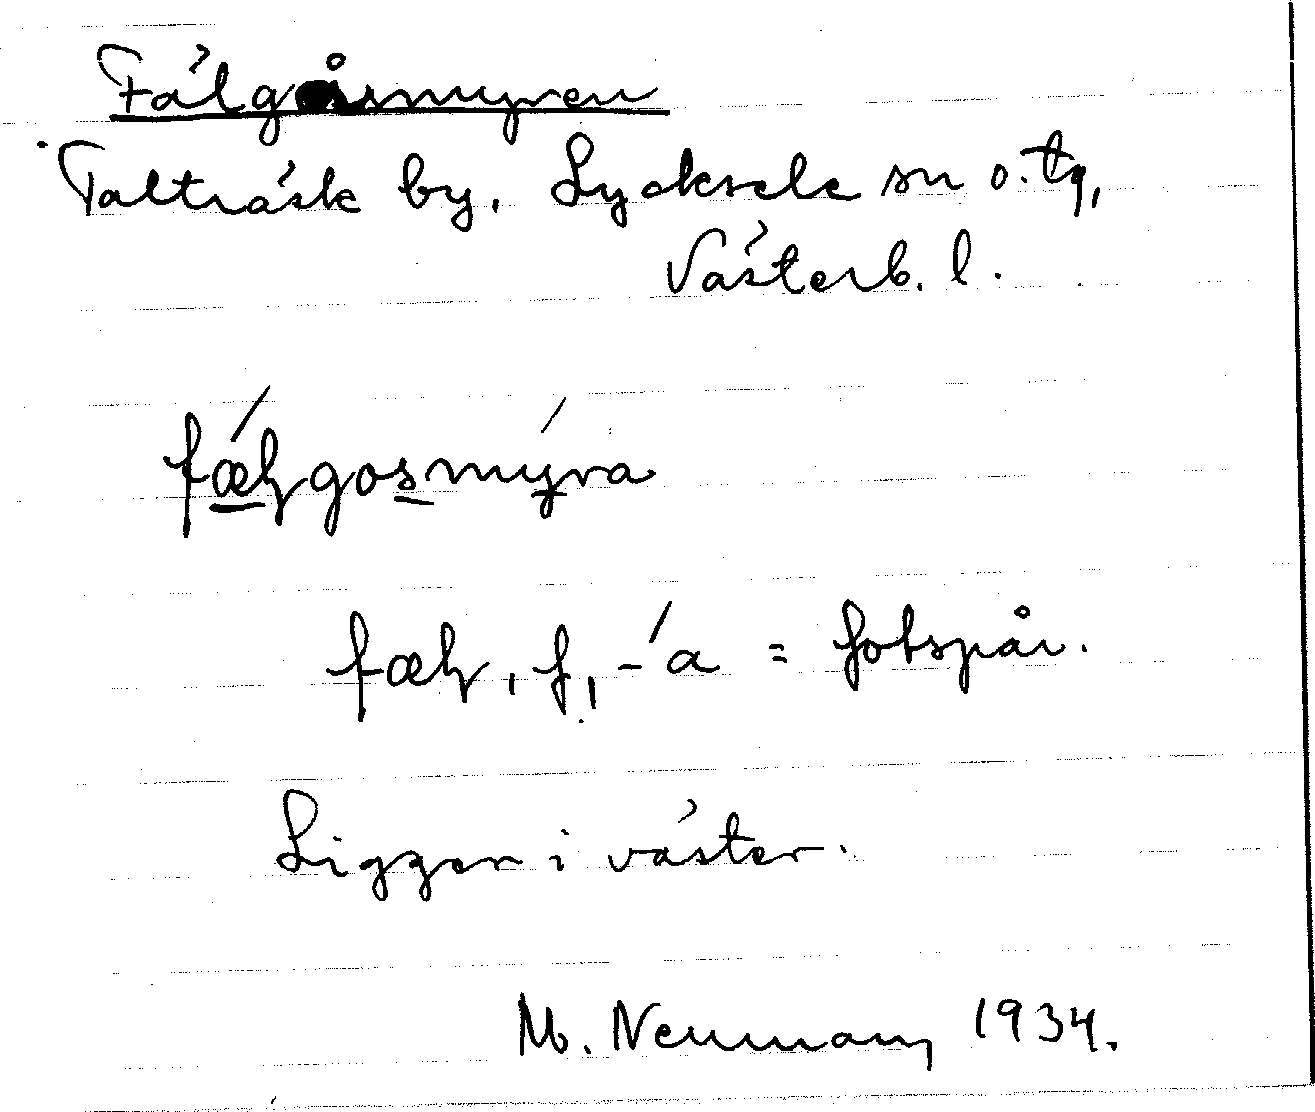 Fälgåsmyren
Talträsk by, Lycksele sn o. tg,
Västerb. l.
fǽlgosmýra
fæl, f, -´a = fotspår.
Ligger i väster.
M. Neuman, 1934.